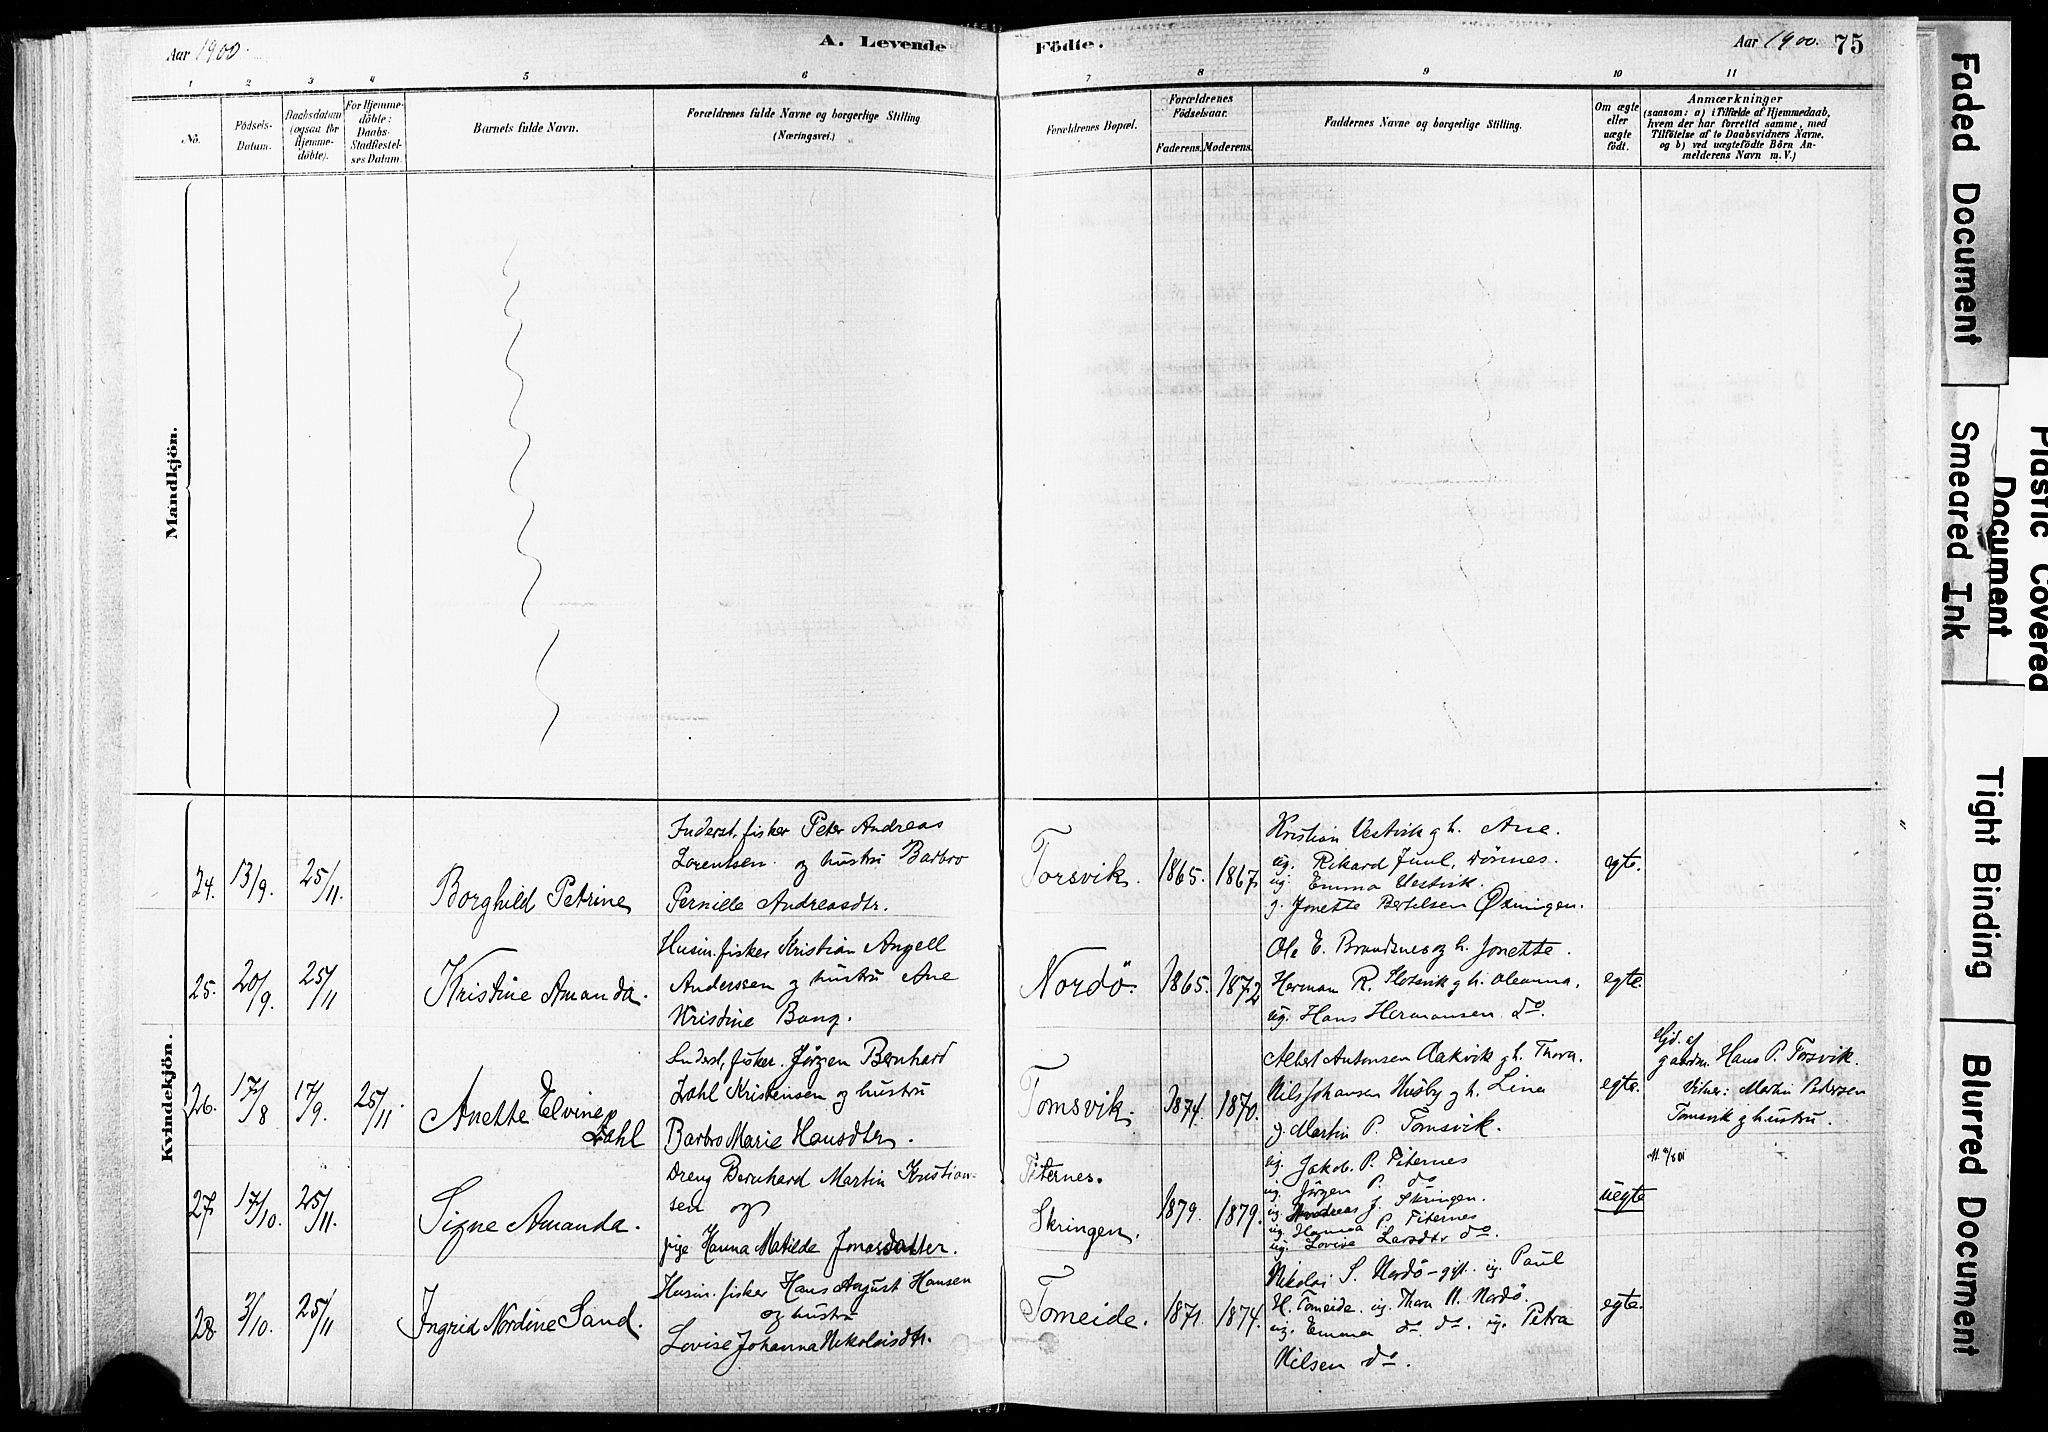 Aar 1900.
A. Levende
Födte.
Aar 1900. 75
1 2 3 4 5 6 7 8 9 10 11
No.
Födsels-
Datum.
Daabsdatum
(ogsaa för
Hjemme-
döbte).
For Hjemme-
döbte:
Daabs-
Stadfæstel-
ses Datum.
Barnets fulde Navn.
Forældrenes fulde Navne og borgerlige Stilling
(Næringsvei.)
Forældrenes Bopæl.
Forældrenes
Födselsaar.
Faderens. Moderens.
Faddernes Navne og borgerlige Stilling.
Om ægte
eller
uægte
födt.
Anmærkninger
(saasom: a) i Tilfælde af Hjemmedaab,
hvem der har forrettet samme, med
Tilföielse af to Daabsvidners Navne,
og b) ved uægtefödte Börn An-
melderens Navn m. V.)
Mandkjön.
Kvindekjön.
24. 13/9. 25/11. Borghild Petrine
Inderst, fisker Peter Andreas
Lorentsen og hustru Barbro
Pernille Andreasdtr.
Torsvik. 1865. 1867.
Kristian Vestvik g h. Ane.
ug. Rikard Juul,
ug. Emma Vestvik.
g. Jonette Bertelsen Øxningen.
egte.
25. 20/9. 25/11 Kristine Amanda.
Husm. fisker Kristian Angell
Anderssen og hustru Ane
Kristine Bang.
Nordö. 1865. 1872
Ole E. Brandsnes og h. Jonette.
Herman R. Slotsvik g h. Oleanna.
ug. Hans Hermansen do.
egte.
26. 17/8 17/9. 25/11. Anette Elvine
Dahl
Inderst, fisker. Jörgen Bernhard
Dahl Kristensen og hustru
Barbro Marie Hansdtr.
Tomsvik. 1874. 1870.
Albert Antonsen g h. Thora.
Nils Johansen Husby g h. Lina
g. Martin P. Tomsvik.
egte.
Hjd. af
gaardm. Hans P. Torsvik.
Vitner: Martin Pedersen
Tomsvik g hustru.
27 17/10. 25/11. Signe Amanda.
Dreng Bernhard Martin Kristian-
sen og
pige Hanna Matilde Jonasdatter.
Titernes.
Skringen. 1879. 1879.
ug. Jakob. P. Titernes
ug. Jörgen P. do
ug. Andreas J. Skringen.
ug. Hanna P. Titernes
ug. Lovise Larsdtr do.
uegte
28 3/10. 25/11 Ingrid Nordine Sand.
Husm. fisker Hans August Hansen
og hustru
Lovise Johanna Nikolaisdtr.
Tomeide. 1871. 1874.
Nikolai S. Nordö - gift. ug. Paul
H. Tomeide. ug. Thora N. Nordö.
ug. Emma do. do. ug. Petra
Nilsen do.
egte.
Faded Document
Smeared Ink
Plastic Covered
Document
Tight Binding
Blurred Document